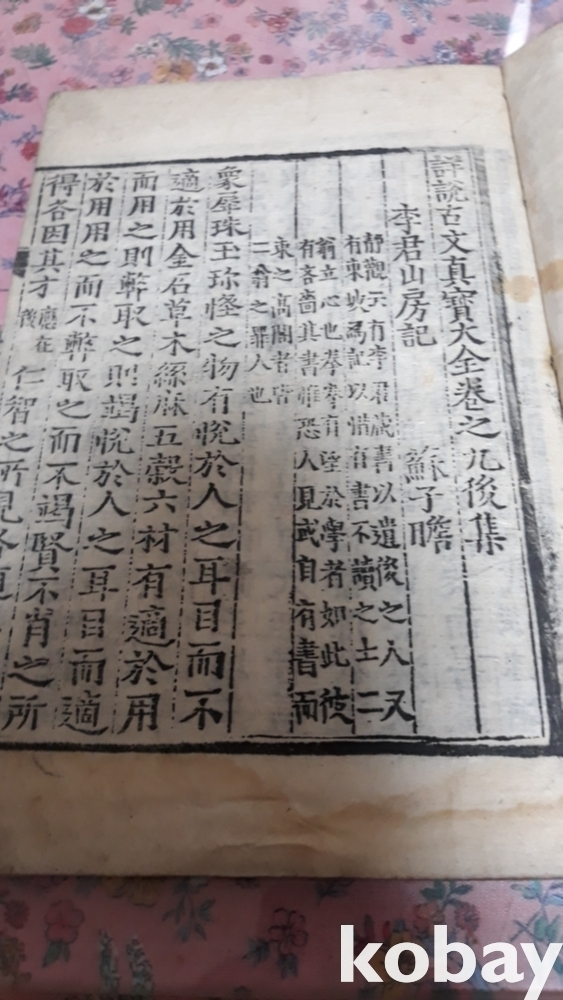 詳說古文眞寶大全卷之九後集
李君山房記 蘇子瞻
靜觀天有李君藏書以遺後之人又
有東坡爲記以惜有書不讀之士二
翁立心也拳拳有望於學者如此彼
有吝嗇其書惟恐人見或自有書而
束之高閣者皆
二翁之罪人也
象犀珠玉珍怪之物有悅於人之耳目而不
適於用金石草木絲麻五穀六材有適於用
而用之則弊取之則竭悅於人之耳目而適
於用用之而不弊取之而不竭賢不肖之所
得各因其才 應在後 仁智之所見各
kobay